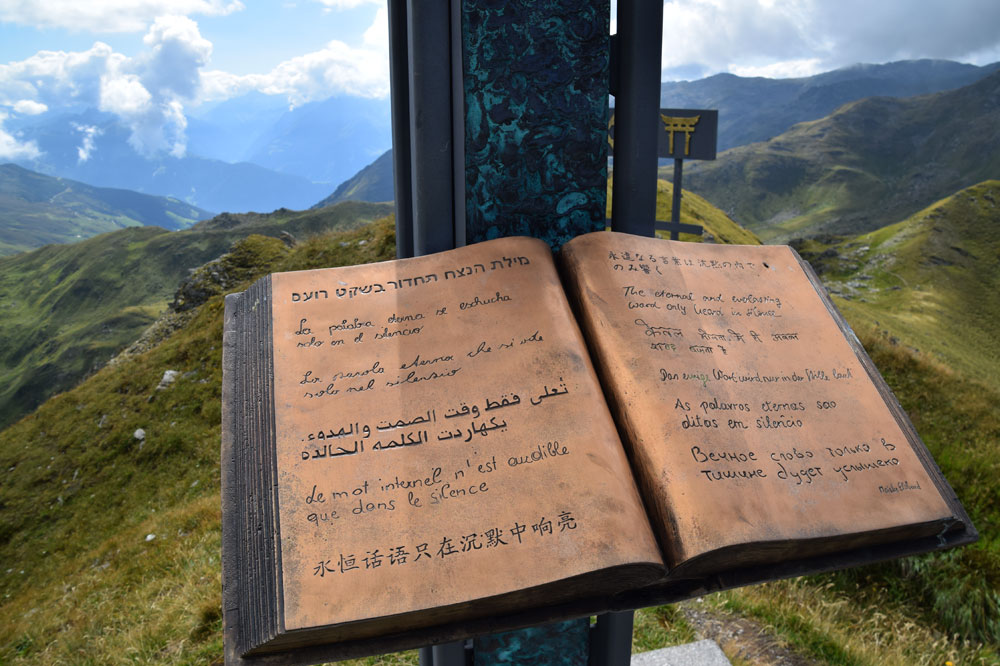 מילת הנצח תחדור בשקט רועם
La palabra eterna se eschucha
solo en el silencio
La parola eterna che si vite
solo nel silenzio
تُعلى فقط وقت الصمت والهدوء.
الكلمه الخالدة
de mot internel n'est audible
que dans le silence
永恒话语只在沉默中响亮
永遠なる言葉は沈黙の内で
のみ響く
The eternal and everlasting
word only heard in silence
Das ewige Wort wird nur in der Stille laut
As palavros eternas sao
ditas em silêncio
Вечное слово только в
тишине будет услышено